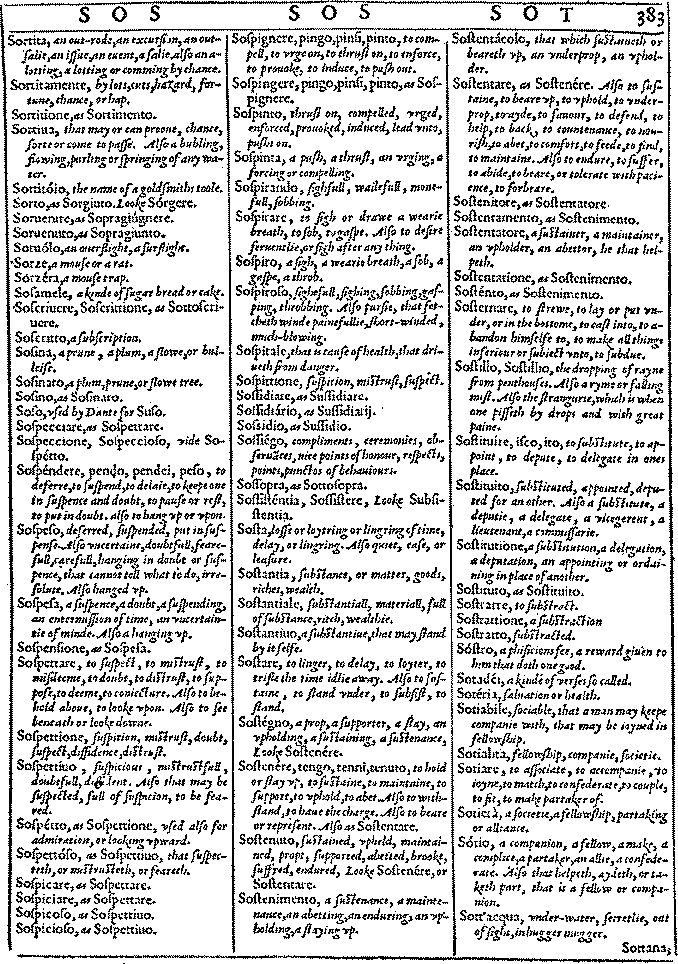 S O S
S O S
S O T
383
Sortita, an out-rode, an excursion, an out-
salie, an issue, an euent, a salie. also an a-
lotting, a lotting or comming by chance.
Sortitamente, by lots, cuts, hazard, for-
tune, chance, or hap.
Sortitione, as Sortimento.
Sortiua, that may or can prooue, chance,
sorte or come to passe. Also a bubling,
flowing, purling or springing of any wa-
ter.
Sortitóio, the name of a goldsmiths toole.
Sorto, as Sorgiuto. Looke Sórgere.
Soruenire, as Sopragiúgnere.
Soruenuto, as Sopragiunto.
Soruólo, an ouerflight, a surflight.
Sorze, a mouse or a rat.
Sorzéra, a mouse trap.
Sosamele, a kinde of sugar bread or cake.
Soscriuere, Soscrittione, as Sottoscri-
uere.
Soscritto, a subscription.
Sosina, a prune, a plum, a slowe, or bul-
leise.
Sosinaro, a plum, prune, or slowe tree.
Sosino, as Sosinaro.
Soso, vsed by Dante for Suso.
Sospecciare, as Sospettare.
Sospeccione, Sospeccioso, vide So-
spétto.
Sospéndere, pendo, pendei, peso, to
deferre, to suspend, to delaie, to keepe one
in suspence and doubt, to pause or rest,
to put in doubt. also to hang vp or vpon.
Sospeso, deferred, suspended, put in sus-
pense. Also vncertaine, doubtfull, feare-
full, carefull, hanging in doubt or sus-
pence, that cannot tell what to do, irre-
solute. Also hanged vp.
Sospesa, a suspence, a doubt, a suspending,
an entermission of time, an vncertain-
tie of minde. Also a hanging vp.
Sospensione, as Sospesa.
Sospettare, to suspect, to mistrust, to
misdeeme, to doubt, to distrust, to sup-
pose, to deeme, to coniecture. Also to be-
hold aboue, to looke vpon. Also to see
beneath or looke downe.
Sospettione, suspition, mistrust, doubt,
suspect, diffidence, distrust.
Sospettiuo, suspicious, mistrustfull,
doubtfull, diffident. Also that may be
suspected, full of suspicion, to be fea-
red.
Sospétto, as Sospettione, vsed also for
admiration, or looking vpward.
Sospettóso, as Sospettiuo, that suspec-
teth, or mistrusteth, or feareth.
Sospicare, as Sospettare.
Sospiciare, as Sospettare.
Sospicoso, as Sospettiuo.
Sospicioso, as Sospettiuo.
Sospignere, pingo, pinsi, pinto, to com-
pell, to vrge on, to thrust on, to inforce,
to prouoke, to induce, to push out.
Sospingere, pingo, pinsi, pinto, as Sos-
pignere.
Sospinto, thrust on, compelled, vrged,
enforced, prouoked, induced, lead vnto,
pusht on.
Sospinta, a push, a thrust, an vrging, a
forcing or compelling.
Sospirando, sighfull, wailefull, mone-
full, sobbing.
Sospirare, to sigh or drawe a wearie
breath, to sob, to gaspe. Also to desire
feruentlie, or sigh after any thing.
Sospiro, a sigh, a wearie breath, a sob, a
gaspe, a throb.
Sospiroso, sighefull, sighing, sobbing, gas-
ping, throbbing. Also pursie, that fet-
cheth winde painefullie, short-winded,
much-blowing.
Sospitale, that is cause of health, that dri-
ueth from danger.
Sospittione, suspition, mistrust, suspect.
Sossidiare, as Sussidiare.
Sossidiário, as Sussidiarij.
Sossidio, as Sussidio.
Sossiégo, compliments, ceremonies, ob-
seruances, nice points of honour, respects,
points, punctos of behauiours.
Sossopra, as Sottosopra.
Sossisténtia, Sossistere, Looke Subsi-
stentia.
Sosta, losse or loytring or lingring of time,
delay, or lingring. Also quiet, ease, or
leasure.
Sostantia, substance, or matter, goods,
riches, wealth.
Sostantiale, substantiall, materiall, full
of substance, ritch, wealthie.
Sostantiuo, a substantiue, that may stand
by it selfe.
Sostare, to linger, to delay, to loyter, to
trifle the time idlie away. Also to sos-
taine, to stand vnder, to subsist, to
stand.
Sostégno, a prop, a supporter, a stay, an
vpholding, a sustaining, a sustenance,
Looke Sostenére.
Sostenére, tengo, tenni, tenuto, to hold
or stay vp, to sustaine, to maintaine, to
support, to vphold, to abet. Also to with-
stand, to haue the charge. Also to beare
or represent. Also as Sostentare.
Sostenuto, sustained, vpheld, maintai-
ned, propt, supported, abetted, brooke,
suffred, endured. Looke Sostenére, or
Sostentare.
Sostenimento, a sustenance, a mainte-
nance, an abetting, an enduring, an vp-
holding, a staying vp.
Sostentácolo, that which sustaineth or
beareth vp, an vnderprop, an vphol-
der.
Sostentare, as Sostenére. Also to sus-
taine, to beare vp, to vphold, to vnder-
prop, to ayde, to fauour, to defend, to
help, to back, to countenance, to nou-
rish, to abet, to comfort, to feede, to find,
to maintaine. Also to endure, to suffer,
to abide, to beare, or tolerate with paci-
ence, to forbeare.
Sostenitore, as Sostentatore.
Sostentamento, as Sostenimento.
Sostentatore, a sustainer, a maintainer,
an vpholder, an abettor, he that hel-
peth.
Sostentatione, as Sostenimento.
Sosténto, as Sostenimento.
Sosternare, to strewe, to lay or put vn-
der, or in the bottome, to cast into, to a-
bandon himselfe to, to make all things
inferiour or subiect vnto, to subdue.
Sostillo, Sostilho, the dropping of rayne
from penthouses. Also a ryme or falling
mist. Also the strangurie, which is when
one pisseth by drops and with great
paine.
Sostituire, isco, ito, to substitute, to ap-
point, to depute, to delegate in ones
place.
Sostituito, substituted, appointed, depu-
ted for another. Also a substitute, a
deputie, a delegate, a vicegerent, a
lieutenant, a commissarie.
Sostitutione, a substitution, a delegation,
a deputation, an appointing or ordai-
ning in place of another.
Sostituto, as Sostituito.
Sostrarre, to substract.
Sostrattione, a substraction
Sostratto, substracted.
Sóstro, a phisicions fee, a reward giuen to
him that doth one good.
Sotadéi, a kinde of verses so called.
Sotéria, saluation or health.
Sotiabile, sociable, that a man may keepe
companie with, that may be ioyned in
fellowship.
Sotialità, fellowship, companie, societie.
Sotiare, to associate, to accompanie, to
ioyne, to match, to confederate, to couple,
to fit, to make partaker of.
Sotietà, a societie, a fellowship, partaking
or alliance.
Sótio, a companion, a fellow, a make, a
complice, a partaker, an allie, a confede-
rate. Also that helpeth, aydeth, or ta-
keth part, that is a fellow or compa-
nion.
Sott'acqua, vnder-water, secretlie, out
of sight, in hugger mugger.
Sottana,